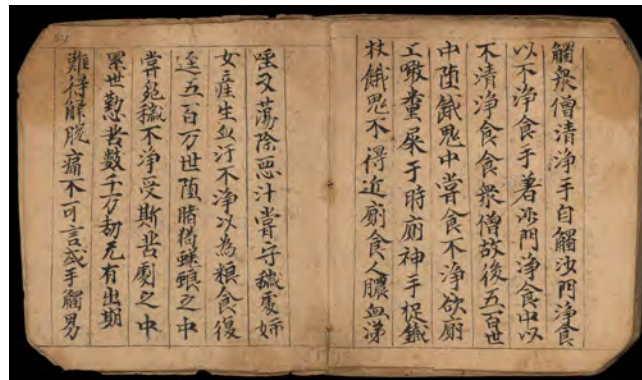 觸衆僧清浄手自觸沙門浄食
以不浄食手著沙門浄食中以
不清浄食食衆僧故後五百世
中墮餓鬼中嘗食不浄欲廁
上噉糞屎于時廁神手捉鐵
杖餓鬼不得近廁食人膿血涕
唾又蕩除惡汁嘗守穢處婦
女產生血汙不浄以為粮食復
逕五百万世墮豬狗蜣蜋之中
嘗菀穢不浄受斯苦劇之中
累世懃苦數千万劫无有出期
難得解脫痛不可言或手觸男